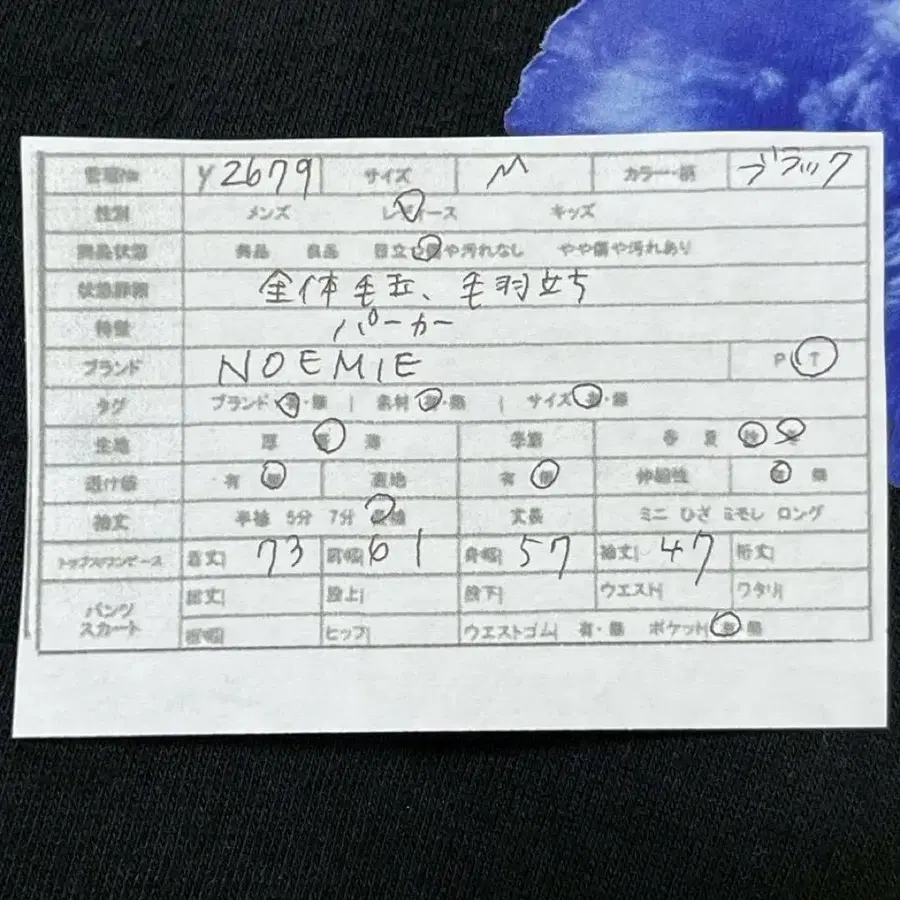 管理No Y2679 サイズ M カラー・柄 ブラック
性別 メンズ レディース キッズ
商品状態 美品 良品 目立つ傷や汚れなし やや傷や汚れあり
状態詳細 全体毛玉、毛羽立ち
特徴 パーカー
ブランド NOEMIE P T
タグ ブランド 有・無 | 素材 有・無 | サイズ 有・無
生地 厚 普 薄 季節 春 夏 秋 冬
透け感 有 無 裏地 有 無 伸縮性 有 無
袖丈 半袖 5分 7分 長袖 丈長 ミニ ひざ ミモレ ロング
トップス/ワンピース 着丈| 73 肩幅| 61 身幅| 57 袖丈| 47 裄丈|
パンツ スカート 総丈| 股上| 股下| ウエスト| ワタリ|
裾幅| ヒップ| ウエストゴム| 有・無 ポケット| 有 無